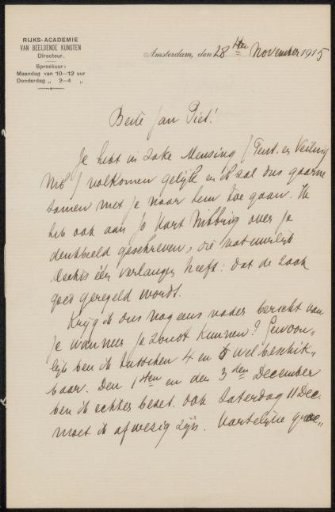 RIJKS-ACADEMIE
VAN BEELDENDE KUNSTEN
Directeur.
Spreekuur:
Maandag van 10–12 uur
Donderdag „ 2–4 „
Amsterdam, den 28sten November 1915
Beste Jan Piet!
Je hebt in zake Mensing / Tent. en Veiling
Mij / volkomen gelijk en ik zal dus gaarne
samen met je naar hem toe gaan. Ik
heb ook aan Jo Hart Nibbrig over je
denkbeeld geschreven, die natuurlijk
slechts één verlangen heeft. dat de zaak
goed geregeld wordt.
Krijg ik ons nog eens nader bericht van
je wanneer je zoudt kunnen? Gewoon-
lijk ben ik tusschen 4 en 5 wel beschik-
baar. Den 1sten en den 3den December
ben ik echter bezet. ook Zaterdag 11 Dec.
moet ik afwezig zijn. Hartelijke groe-